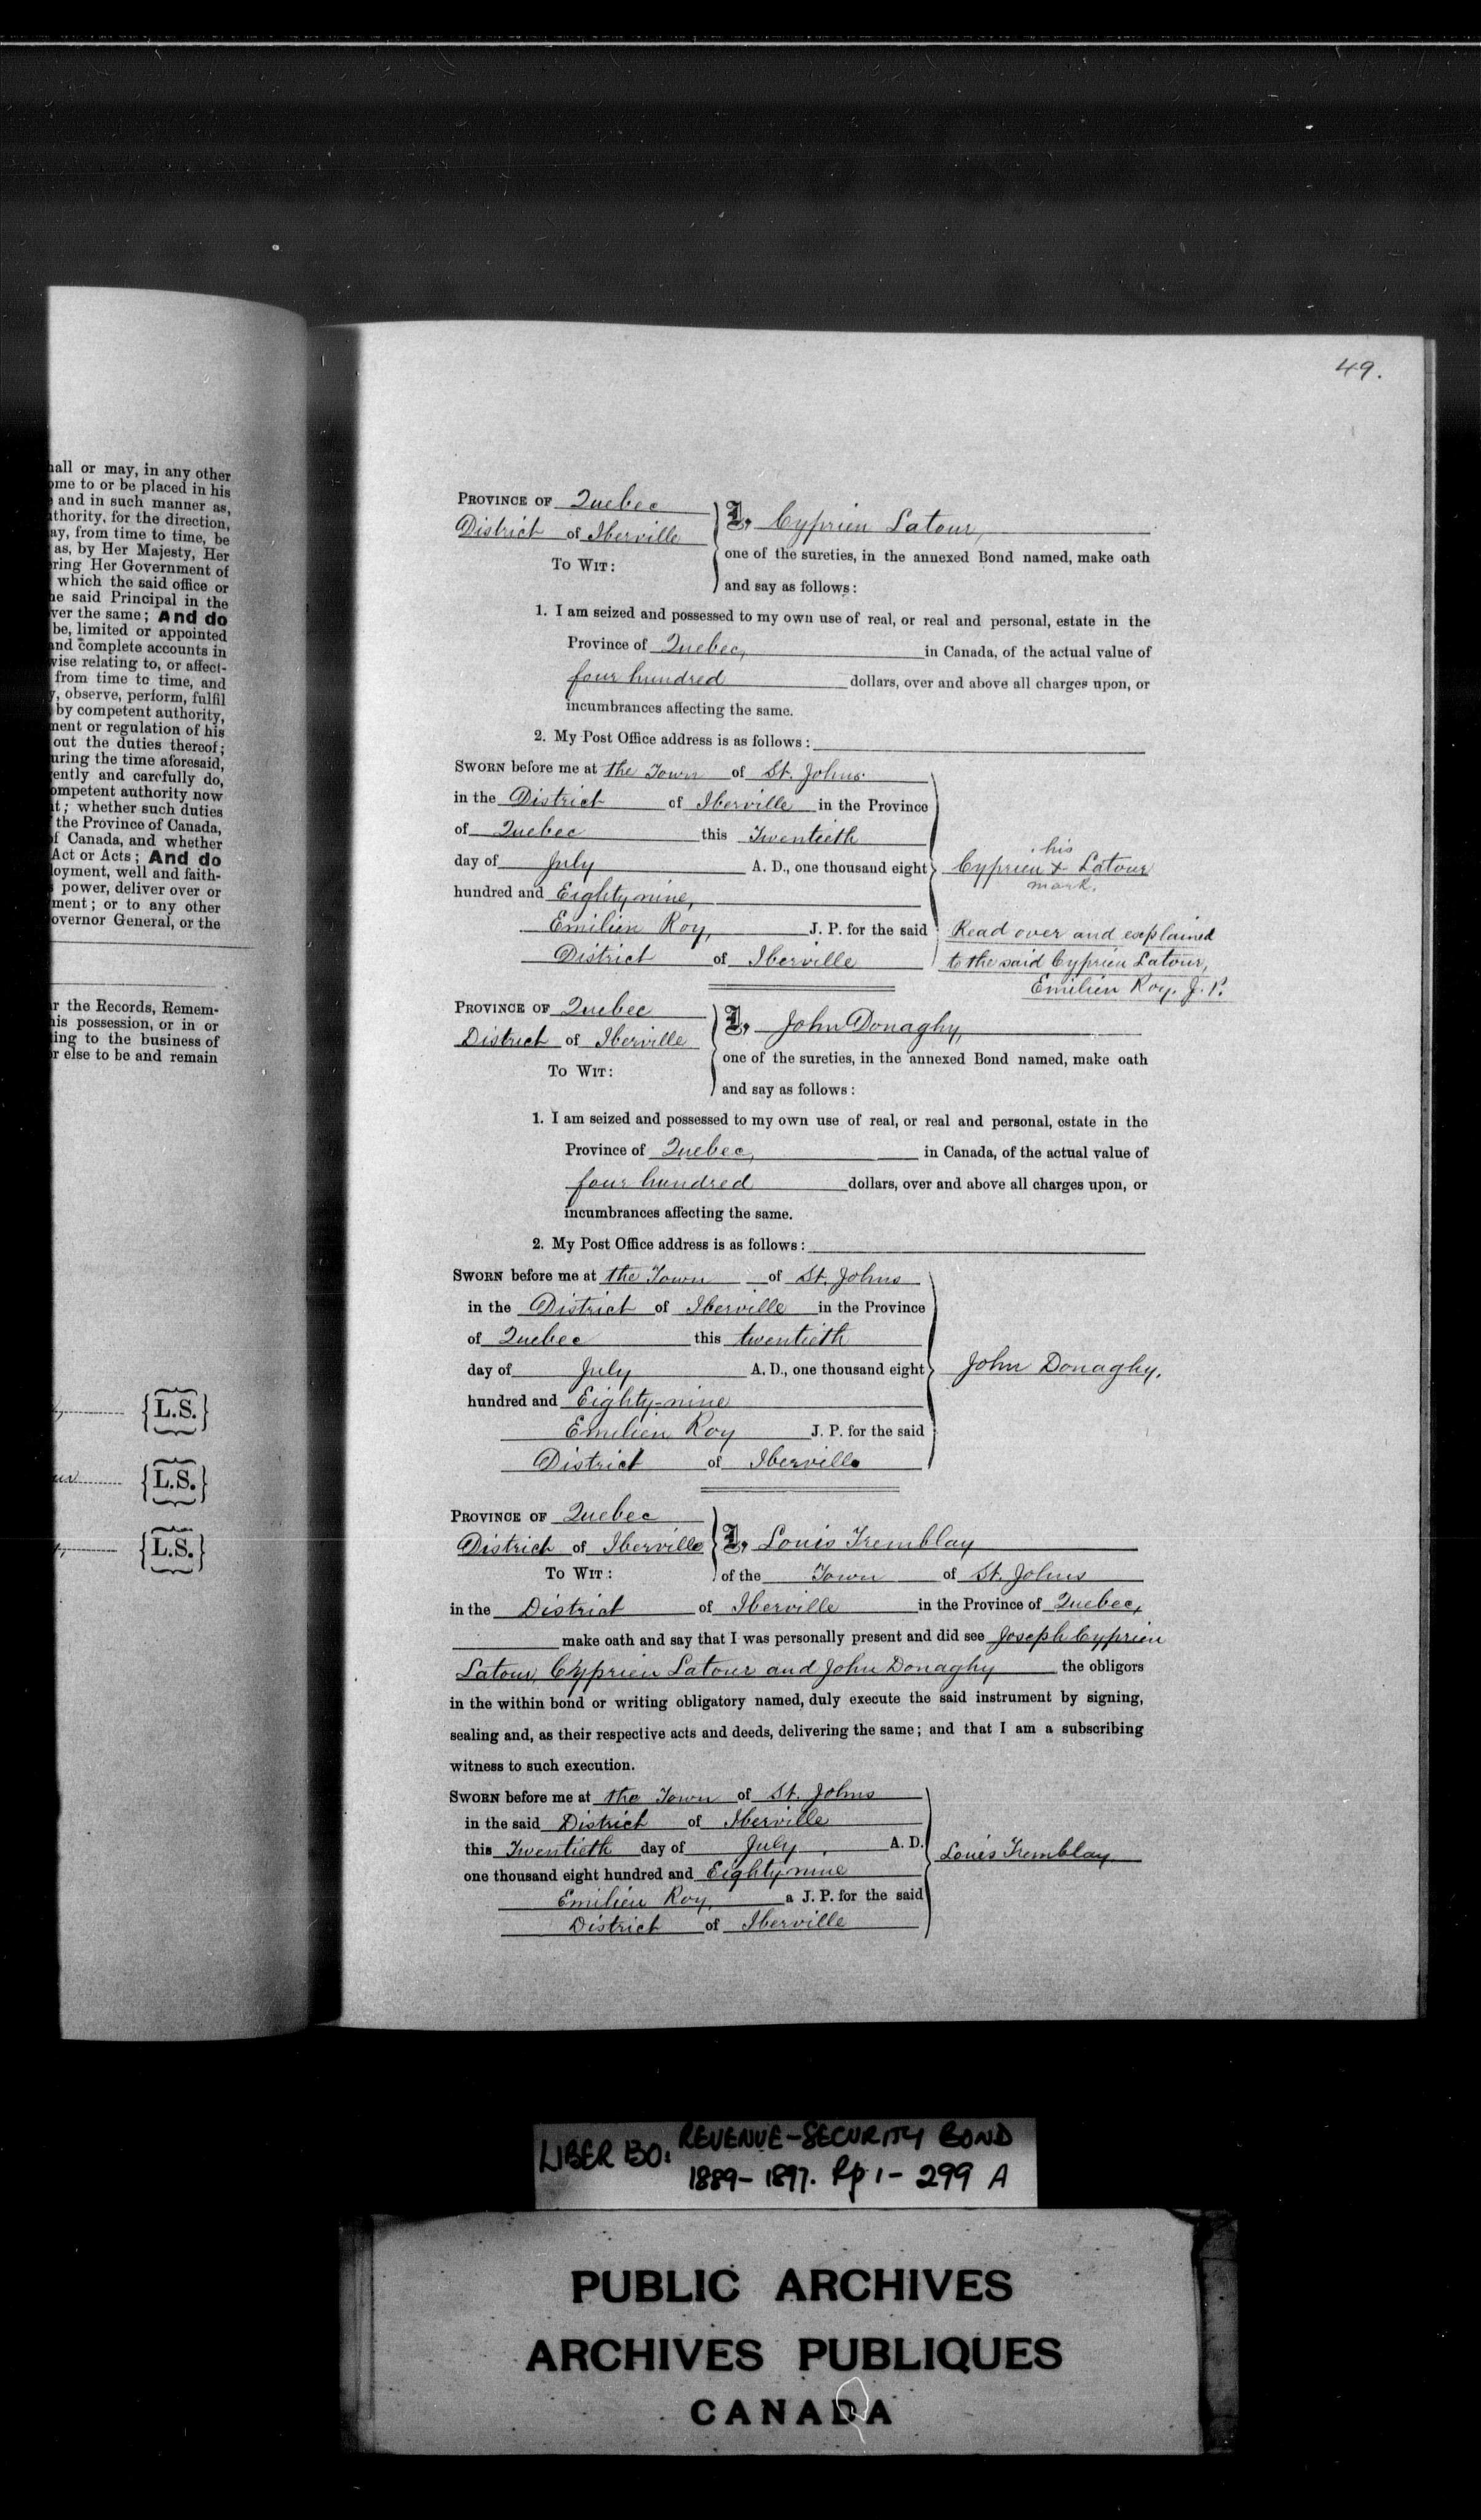 49.
hall or may, in any other
ome to or be placed in his
and in such manner as,
thority, for the direction,
ay, from time to time, be
as, by Her Majesty, Her
ring Her Government of
which the said office or
he said Principal in the
ver the same; And do
be, limited or appointed
and complete accounts in
wise relating to, or affect-
from time to time, and
y, observe, perform, fulfil
by competent authority,
ment or regulation of his
out the duties thereof;
uring the time aforesaid,
ently and carefully do,
ompetent authority now
t; whether such duties
the Province of Canada,
of Canada, and whether
Act or Acts; And do
loyment, well and faith-
power, deliver over or
ment; or to any other
overnor General, or the
r the Records, Remem-
his possession, or in or
ing to the business of
r else to be and remain
{L.S.}
{L.S.}
{L.S.}
PROVINCE OF Quebec
District of Iberville
TO WIT:
I, Cyprien Latour,
one of the sureties, in the annexed Bond named, make oath
and say as follows:
1. I am seized and possessed to my own use of real, or real and personal, estate in the
Province of Quebec, in Canada, of the actual value of
four hundred dollars, over and above all charges upon, or
incumbrances affecting the same.
2. My Post Office address is as follows:
SWORN before me at the Town of St. Johns
in the District of Iberville in the Province
of Quebec this Twentieth
day of July A. D., one thousand eight
hundred and Eighty nine,
Emilien Roy, J. P. for the said
District of Iberville
his
Cyprien + Latour
mark.
Read over and explained
to the said Cyprien Latour,
Emilien Roy. J. P.
PROVINCE OF Quebec
District of Iberville
TO WIT:
I, John Donaghy,
one of the sureties, in the annexed Bond named, make oath
and say as follows:
1. I am seized and possessed to my own use of real, or real and personal, estate in the
Province of Quebec, in Canada, of the actual value of
four hundred dollars, over and above all charges upon, or
incumbrances affecting the same.
2. My Post Office address is as follows:
SWORN before me at the Town of St. Johns
in the District of Iberville in the Province
of Quebec this twentieth
day of July A. D., one thousand eight
hundred and Eighty-nine
Emilien Roy J. P. for the said
District of Iberville
John Donaghy.
PROVINCE OF Quebec
District of Iberville
TO WIT:
I, Louis Tremblay
of the Town of St. Johns
in the District of Iberville in the Province of Quebec,
make oath and say that I was personally present and did see Joseph Cyprien
Latour, Cyprien Latour and John Donaghy the obligors
in the within bond or writing obligatory named, duly execute the said instrument by signing,
sealing and, as their respective acts and deeds, delivering the same; and that I am a subscribing
witness to such execution.
SWORN before me at the Town of St. Johns
in the said District of Iberville
this Twentieth day of July A. D.
one thousand eight hundred and Eighty nine
Emilien Roy, a J. P. for the said
District of Iberville
Louis Tremblay
LIBER 130: REVENUE-SECURITY BOND
1889-1897. Pp 1-299 A
PUBLIC ARCHIVES
ARCHIVES PUBLIQUES
CANADA